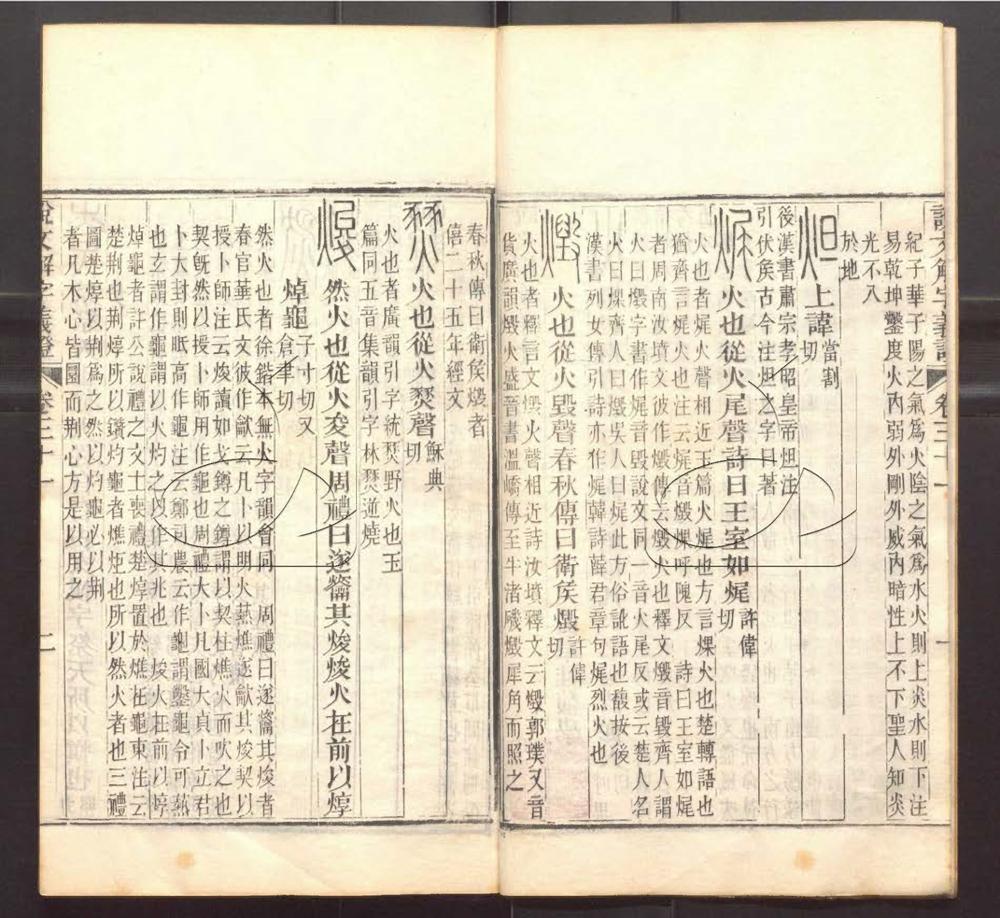 說文解字義證 卷三十一 一
紀子華子陽之氣爲火陰之氣爲水火則上炎水則下注
易乾坤鑿度火內弱外剛外威內暗性上不下聖人知炎
光不入
於地
炟 上諱當割切
後漢書肅宗孝昭皇帝炟注
引伏侯古今注炟之字曰著
焜 火也從火尾聲詩曰王室如焜許偉切
火也者焜火聲相近玉篇火焜也方言煤火也楚轉語也
猶齊言焜火也注云焜音燬煤呼隗反 詩曰王室如焜
者周南汝墳文彼作燬傳云燬火也釋文燬音毀齊人謂
火曰燬字書作焜音毀說文同一音火尾反或云楚人名
火曰煤齊人曰燬吳人曰焜此方俗訛語也馥按後
漢書列女傳引詩亦作焜韓詩薛君章句焜烈火也
燬 火也從火毀聲春秋傳曰衛侯燬許偉切
火也者釋言文燬火聲相近詩汝墳釋文云燬郭璞又音
貨廣韻燬火盛晉書溫嶠傳至牛渚殘燬犀角而照之
春秋傳曰衛侯燬者
僖二十五年經文
燹 火也從火豩聲穌典切
火也者廣韻引字統燹野火也玉
篇同五音集韻引字林燹逆燒
焌 然火也從火夋聲周禮曰遂籥其焌焌火在前以焞
焯龜子寸切又倉聿切
然火也者徐鍇本無火字韻會同 周禮曰遂籥其焌者
春官華氏文彼作龡云凡卜以明火爇燋遂龡其焌契以
授卜師注云焌讀如戈鐏之鐏謂以契柱燋火而吹之也
契旣然以授卜師用作龜也周禮大卜凡國大貞卜立君
卜大封則眡高作龜注云鄭司農云作龜謂鑿龜令可爇
也玄謂作龜謂以火灼之以作其兆也 焌火在前以焞
焯龜者許公說禮之文士喪禮楚焞置於燋在龜東注云
楚荆也荆焞所以鑽灼龜者燋炬也所以然火者也三禮
圖楚焞以荆爲之然以灼龜必以荆
者凡木心皆圓而荆心方是以用之
說文解字義證 卷三十一 二